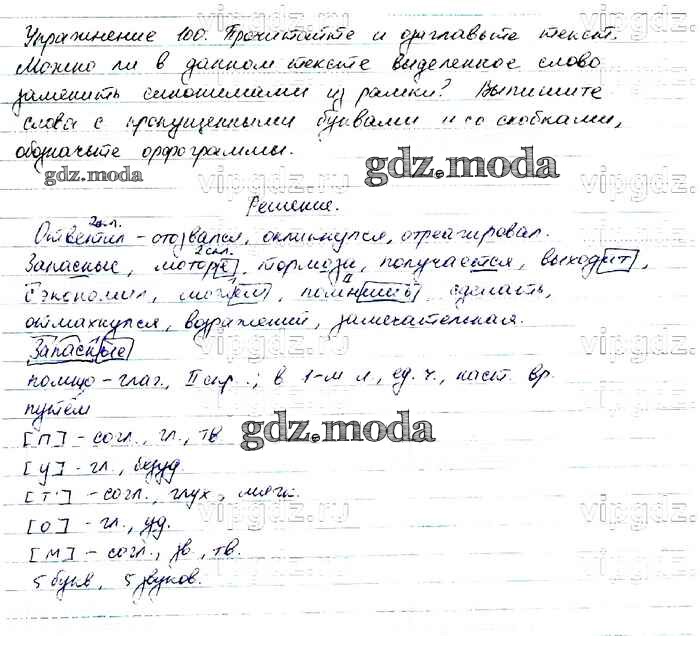 Упражнение 100. Прочитайте и озаглавьте текст.
Можно ли в данном тексте выделенное слово
заменить синонимами из рамки? Выпишите
слова с пропущенными буквами и со скобками,
обозначьте орфограммы.
gdz.moda
gdz.moda
vipgdz.ru
Решение.
2 сп.
Ответил - отозвался, откликнулся, отреагировал.
2 скл.
Запасные, моторе, тормози, получается, выходит,
Сэкономил, можем, помнишь, сделать,
отмахнулся, возражений, замечательная.
Запасные
помню - глаг., II спр.; в 1-м л, ед. ч., наст. вр.
путём
[п] - согл., гл., тв
gdz.moda
[у] - гл., безуд.
[т'] - согл., глух, мягк.
[о] - гл., уд.
[м] - согл., зв, тв.
5 букв, 5 звуков.
vipgdz.ru
gdz.moda